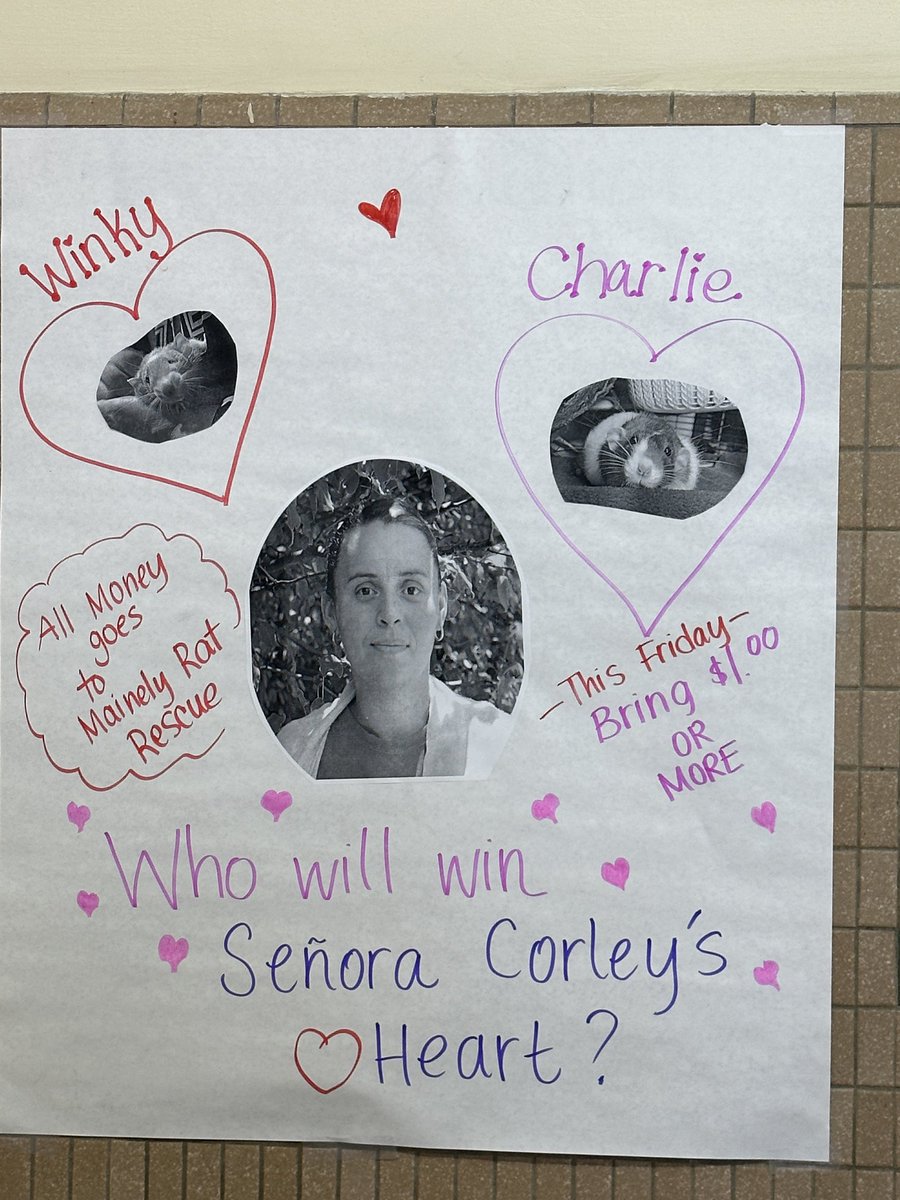 Winky
Charlie
All Money
goes
to
Mainely Rat
Rescue
-This Friday-
Bring $1.00
OR
MORE
Who will win
Señora Corley's
Heart?